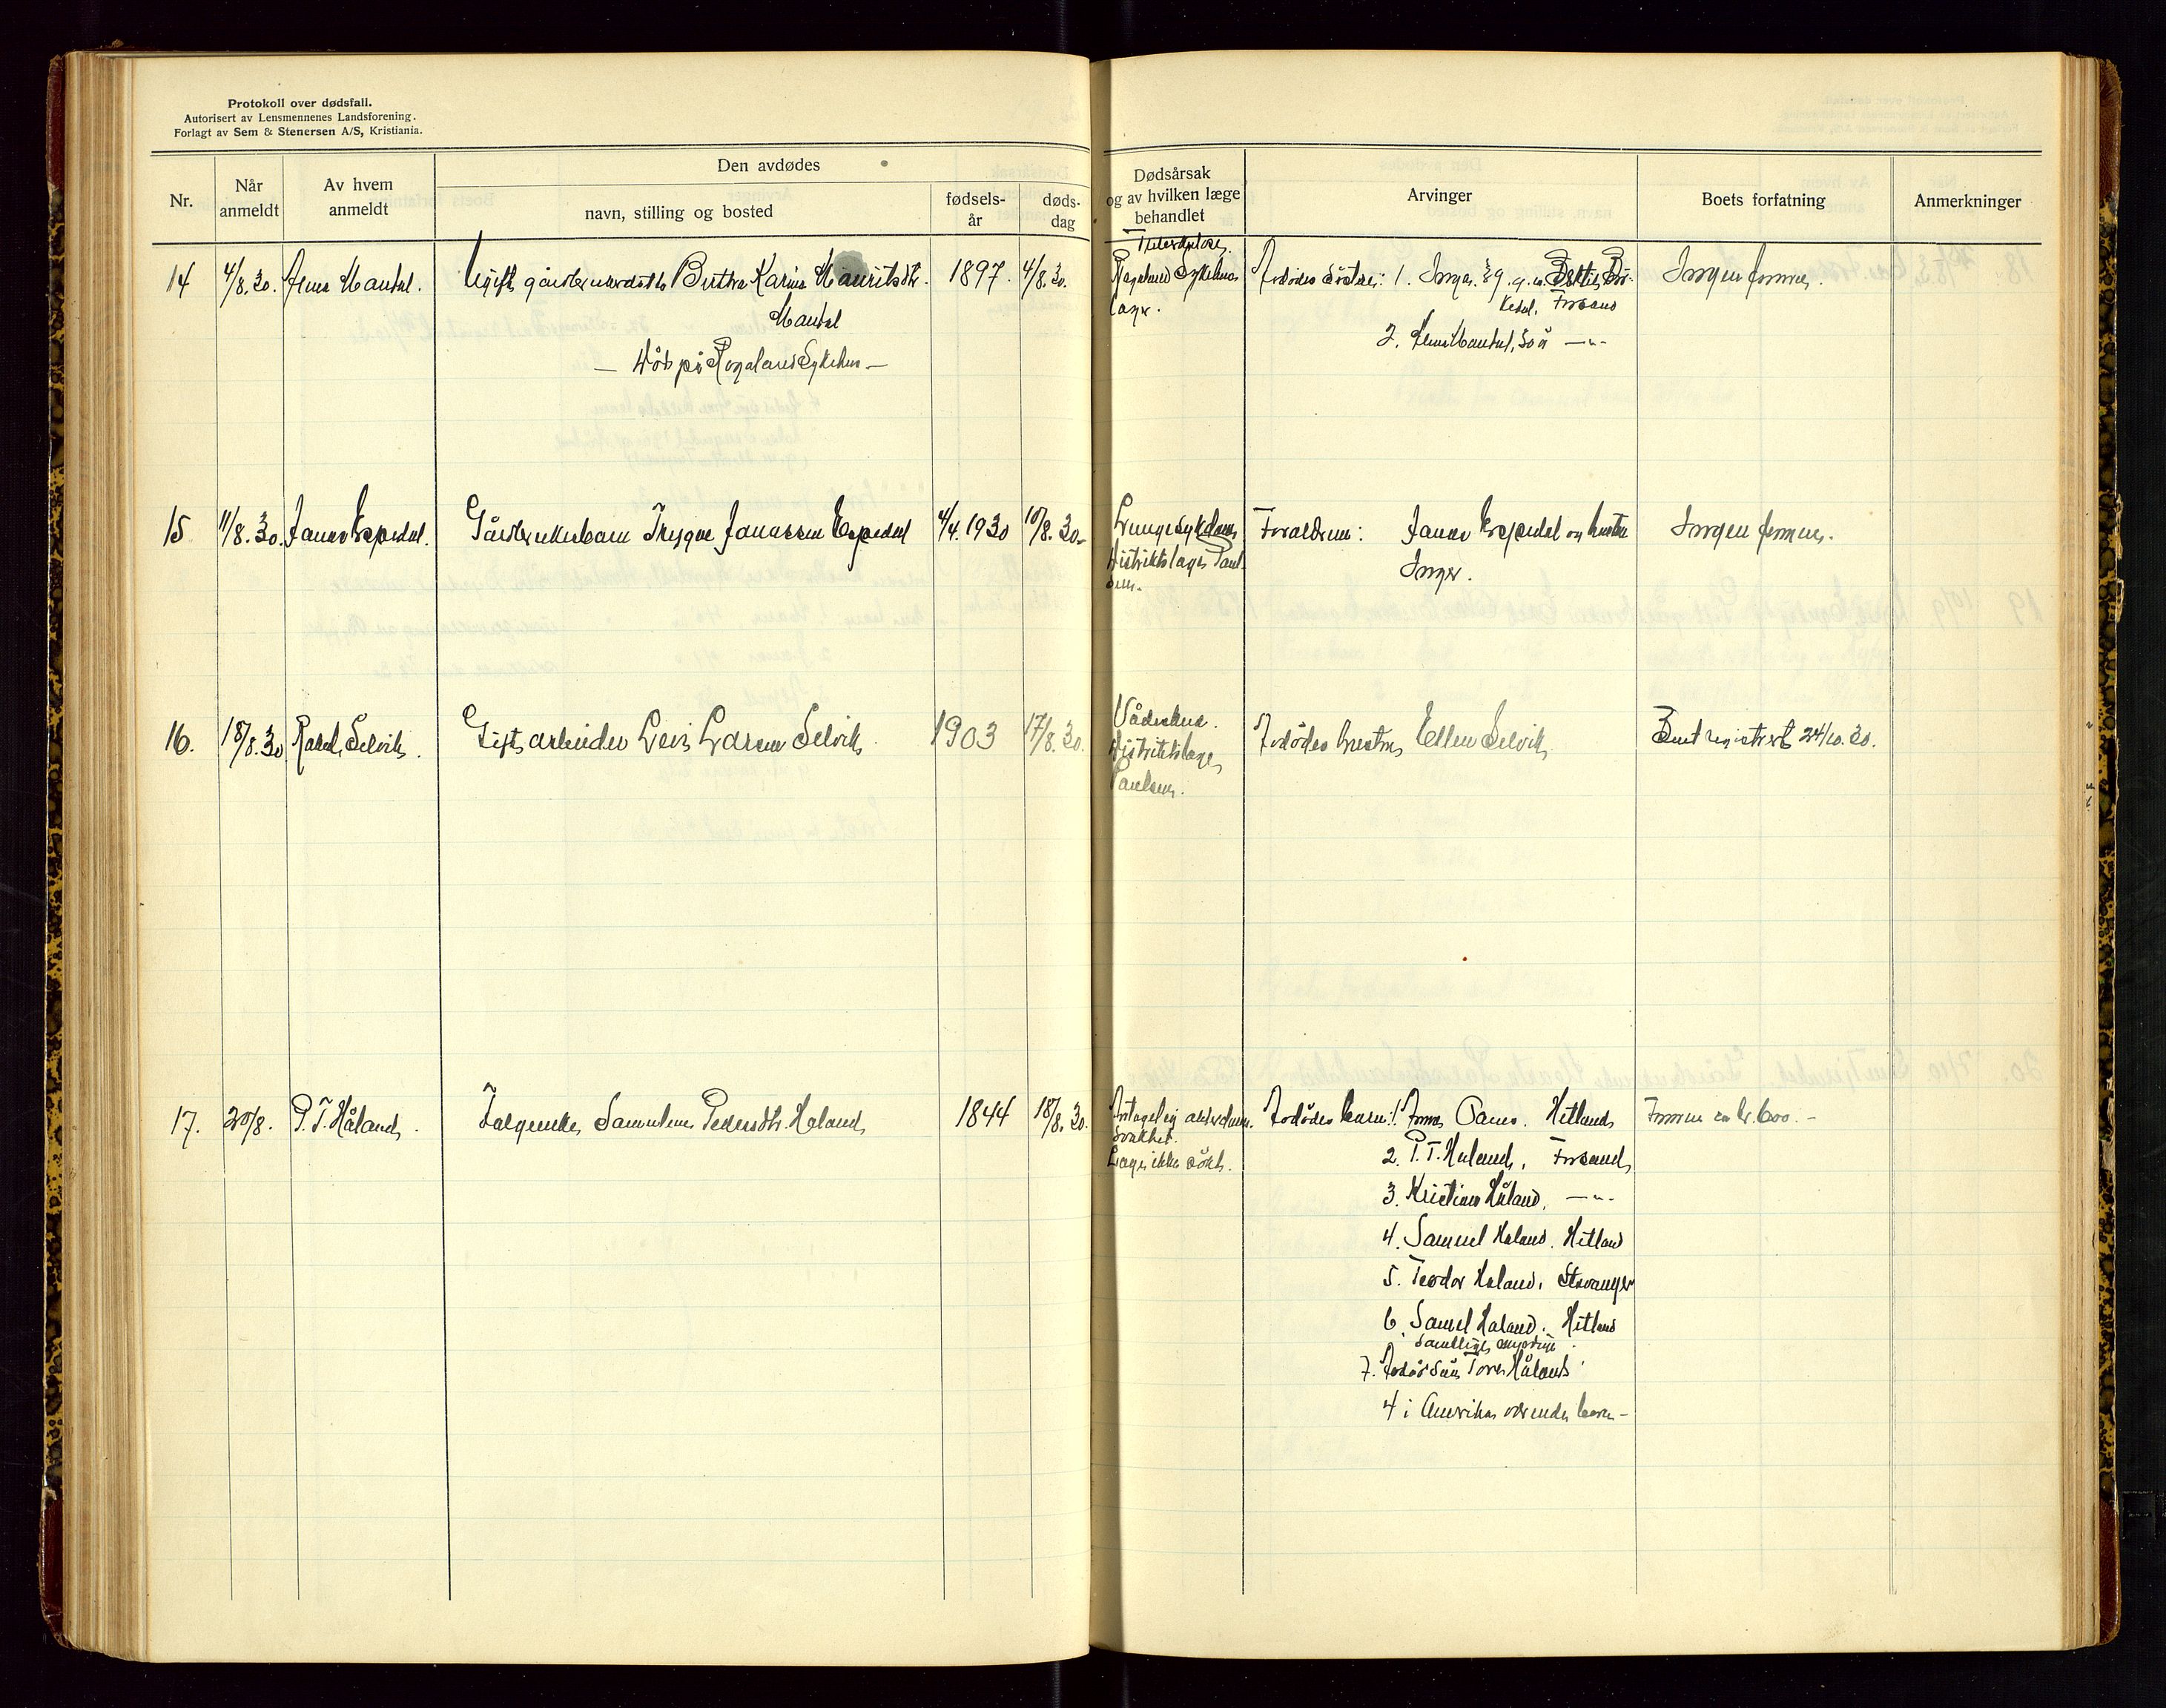 Protokoll over dødsfall.
Autorisert av Lensmennenes Landsforening.
Forlagt av Sem & Stenersen A/S, Kristiania.
Nr.
Når anmeldt
Av hvem anmeldt
Den avdødes
navn, stilling og bosted
fødsels-år
døds-dag
Dødsårsak
og av hvilken læge
behandlet
Arvinger
Boets forfatning
Anmerkninger
14 4/8.30. Mandal. Ugift Bertha Karine Mauritsdtr. 1897. 4/8.30.
Mandal
— Död på Rogaland Sykehus —
Tuberkulose.
Rogaland Sykehus
Avdödes söstre: 1. Inger
Forsand
2. Mandal, 50 år —"—
Ingen formue.
15 11/8.30. Janas Espedal. Gårdbrukerbarn Trygve Janassen Espedal 4/4.1930 10/8.30.
Lungesykdom
Distriktslæge Paul-
sen.
Foreldrene: Janas Espedal og hustru
Inger.
Ingen formue.
16. 18/8.30 Selvik. Gift arbeider Leis Larsen Selvik 1903 17/8.30.
Vådeskud.
Distriktslæge
Paulsen.
Avdödes hustru Ellen Selvik
Boet registrert 24/10.30.
17. 20/8. P. T. Håland. Folgeenke Samuline Pedersdtr. Haland 1844 18/8.30.
Antagelig alderdoms-
svakhet.
Læge ikke sökt.
Avdödes barn: 1. Hetland
2. P. T. Haland, Forsand
3. Kristian Håland, —"—
4. Samuel Haland. Hetland
5. Teodor Haland, Stavanger
6. Samuel Haland. Hetland
Samtlige myndige.
7. Tore Håland
4 i Amerika værende barn —
Formue ca kr. 600.-